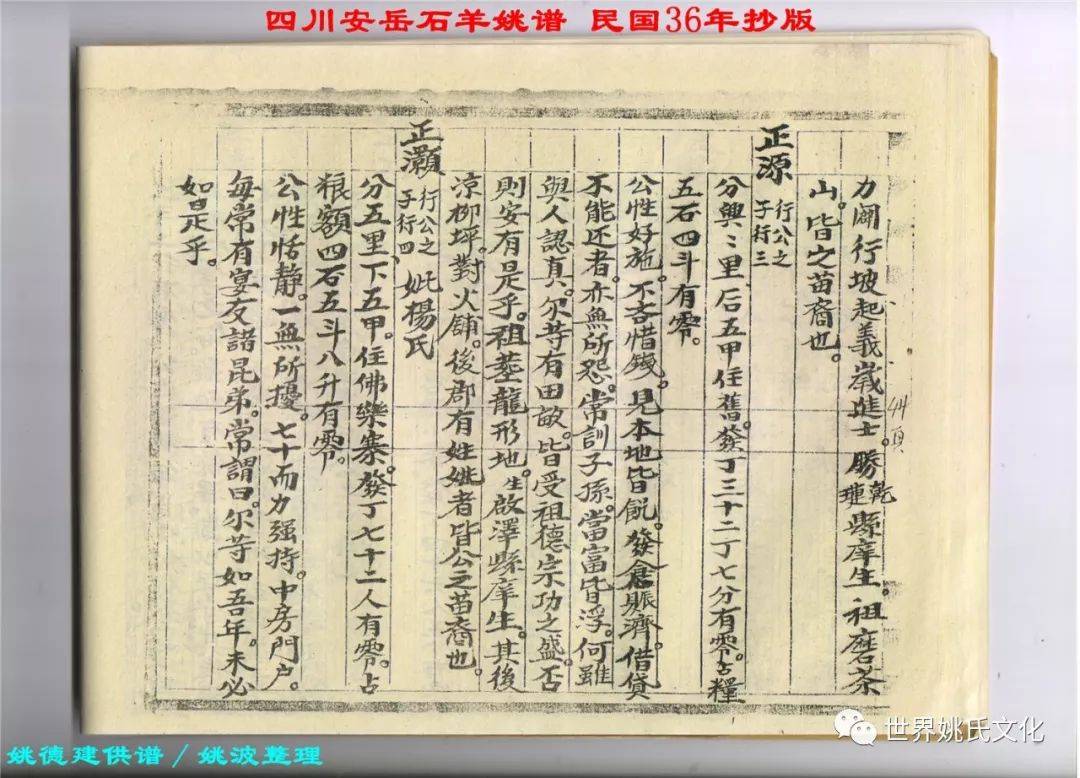 四川安岳石羊姚谱 民国36年抄版
力闢行坡起義歲進士。勝乾璉縣庠生。祖磨茶
山。皆之苗裔也。
44頁
正源 行公之子行三
分興〻里后五甲住舊。發丁三十二丁七分有零。占糧
五石四斗有零。
公性好施。不吝惜錢。見本地皆飢。發倉賑濟。借貸
不能还者。亦無所怨。常訓子孫。當富皆浮。何雖
與人認真。尔等有田畝。皆受祖德宗功之盛。否
則安有是乎。祖塋龍形地。生啟澤縣庠生。其後
凉柳坪。對火舖。後郡有姓姚者皆公之苗裔也。
正灝 行公之子行四 妣楊氏
分五里下五甲。住佛樂寨。發丁七十二人有零。占
粮额四石五斗八升有零。
公性恬静。一無所擾。七十而力强持。中房門户。
每常有宴友諸昆弟。常謂曰。尔等如吾年。未必
如是乎。
世界姚氏文化
姚德建供谱／姚波整理